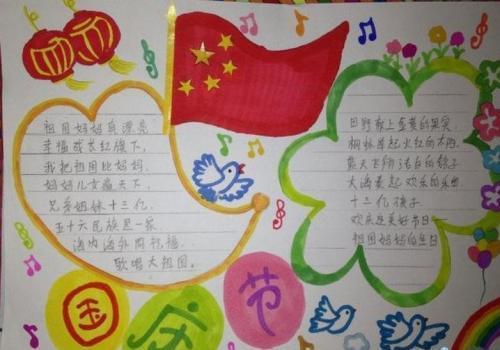 祖国妈妈真漂亮
幸福成长红旗下,
我把祖国比妈妈.
妈妈儿女遍天下,
兄弟姐妹十三亿.
五十六民族是一家.
海内海外同祝福.
歌唱大祖国.
田野献上金黄的果实.
枫林举起火红的
蓝天飞翔洁白的鸽子
大海奏起欢乐的乐曲
十三亿孩子
欢庆美好节日——
祖国妈妈的生日
国庆节